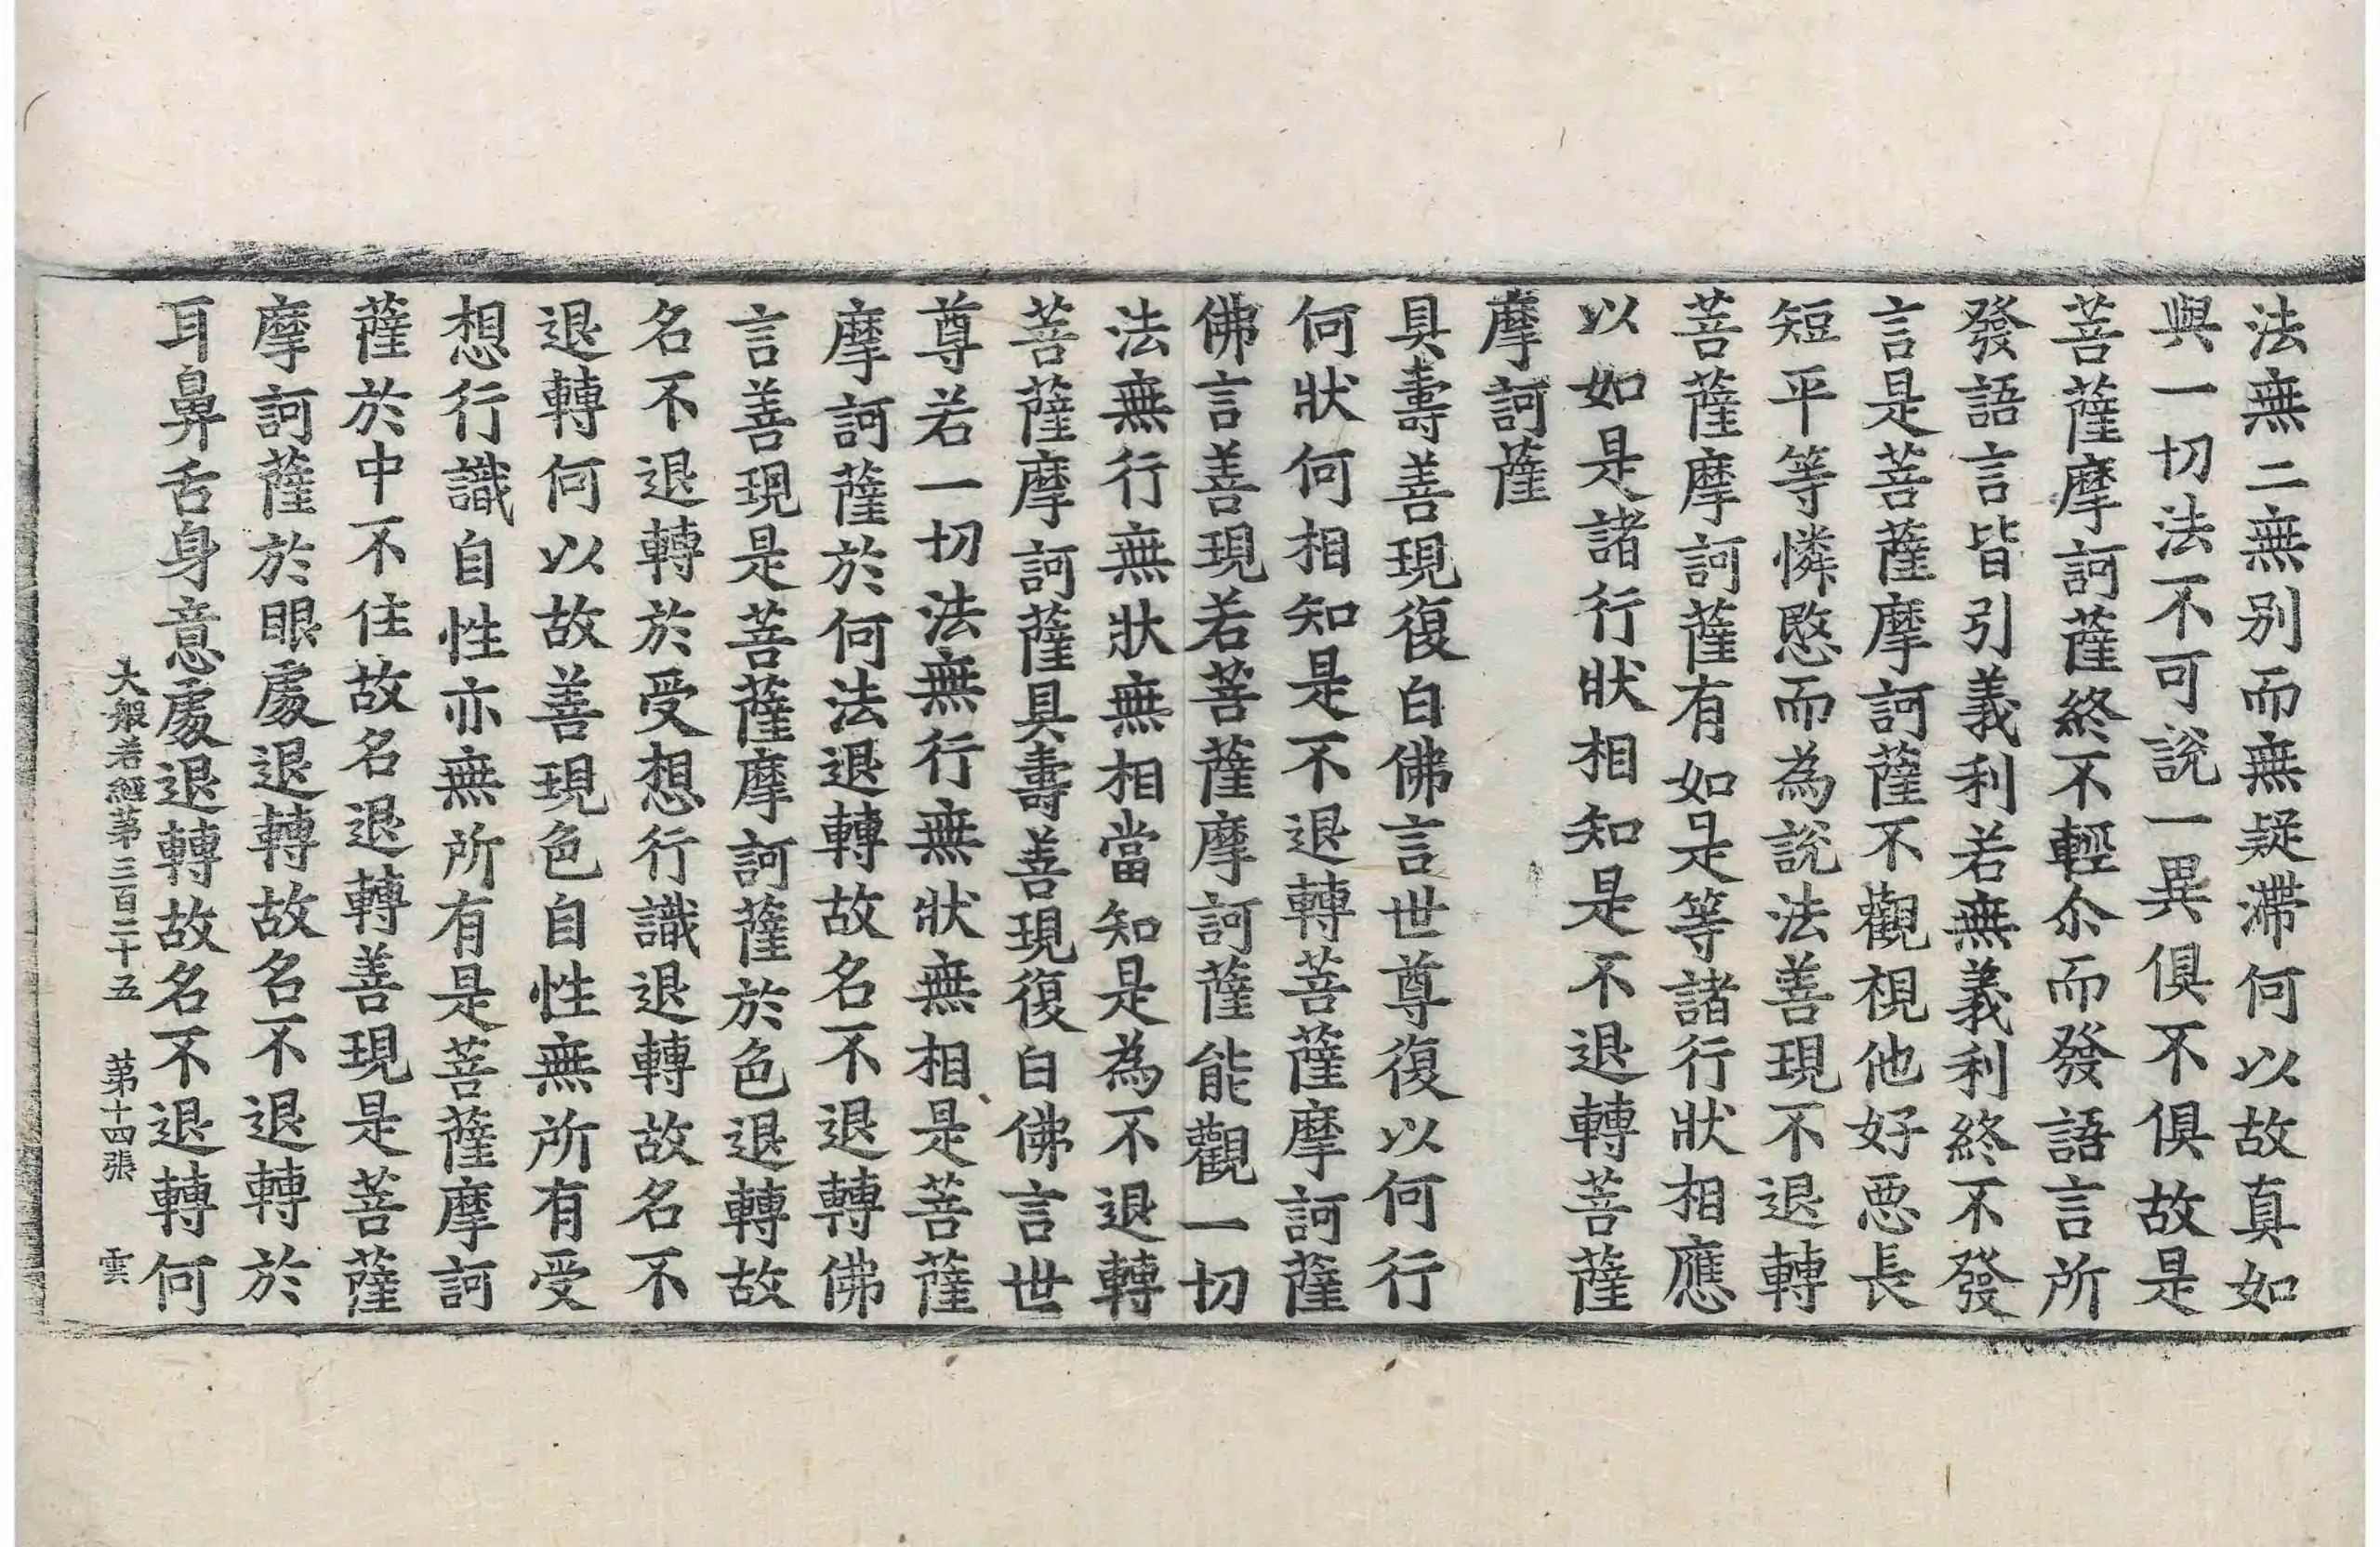 法無二無別而無疑滯何以故真如
與一切法不可說一異俱不俱故是
菩薩摩訶薩終不輕尒而發語言所
發語言皆引義利若無義利終不發
言是菩薩摩訶薩不觀視他好惡長
短平等憐愍而為說法善現不退轉
菩薩摩訶薩有如是等諸行狀相應
以如是諸行狀相知是不退轉菩薩
摩訶薩
具壽善現復白佛言世尊復以何行
何狀何相知是不退轉菩薩摩訶薩
佛言善現若菩薩摩訶薩能觀一切
法無行無狀無相當知是為不退轉
菩薩摩訶薩具壽善現復白佛言世
尊若一切法無行無狀無相是菩薩
摩訶薩於何法退轉故名不退轉佛
言善現是菩薩摩訶薩於色退轉故
名不退轉於受想行識退轉故名不
退轉何以故善現色自性無所有受
想行識自性亦無所有是菩薩摩訶
薩於中不住故名退轉善現是菩薩
摩訶薩於眼處退轉故名不退轉於
耳鼻舌身意處退轉故名不退轉何
大般若經苐三百二十五 苐十四張 雲